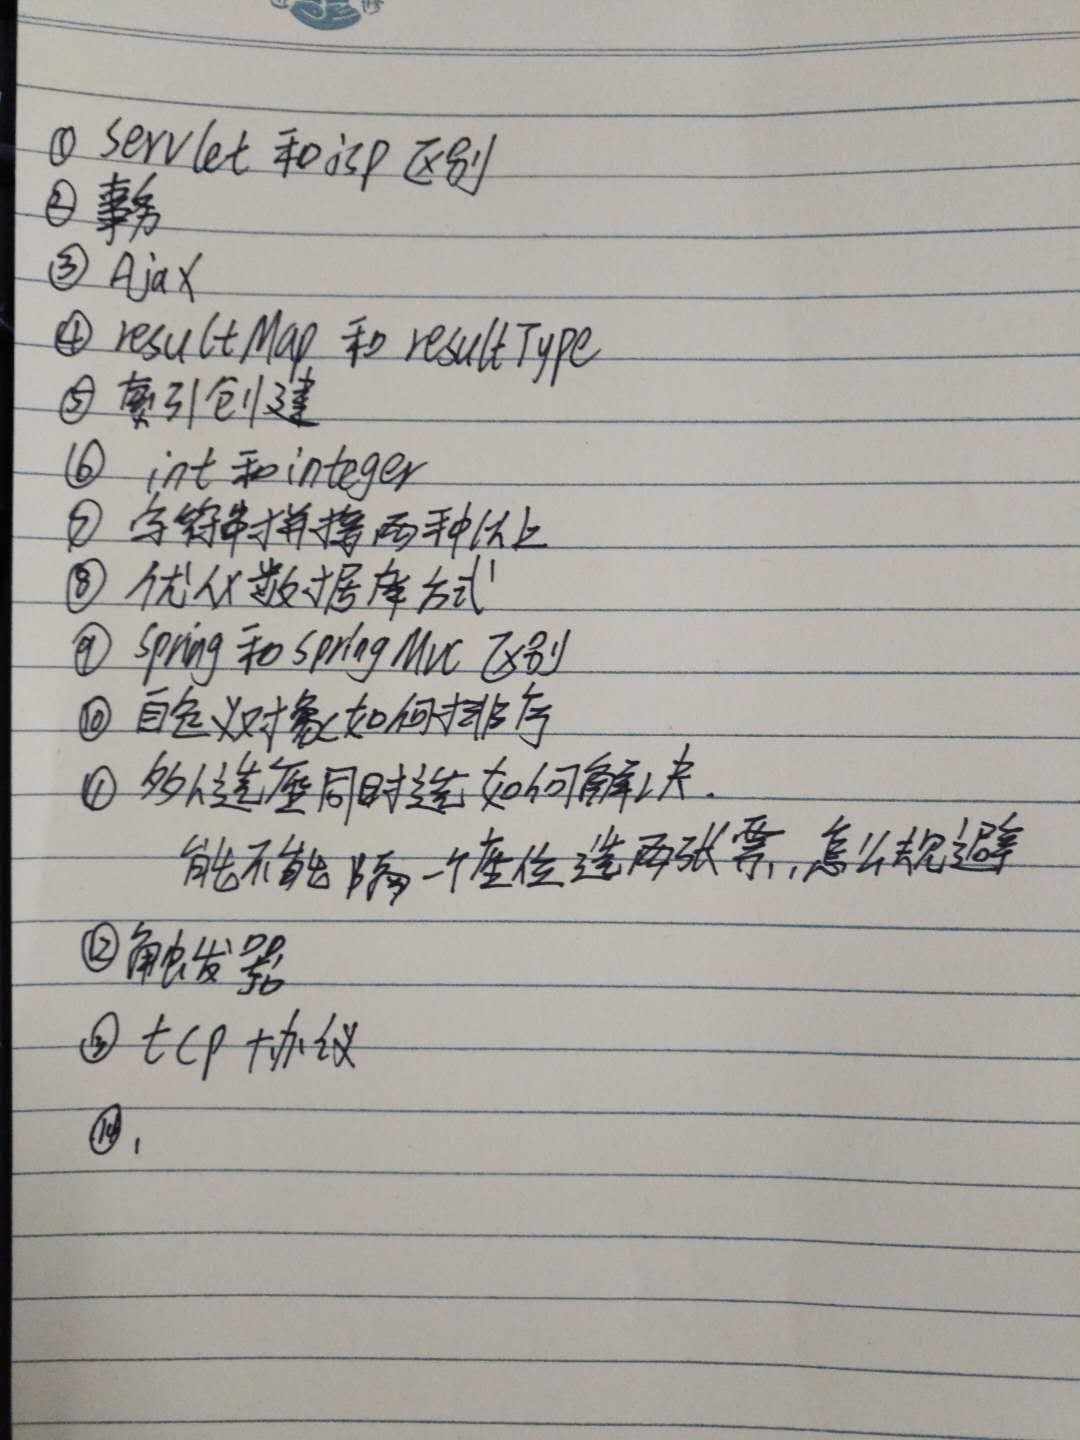 ① servlet 和 jsp 区别
② 事务
③ Ajax
④ resultMap 和 resultType
⑤ 索引创建
⑥ int 和 integer
⑦ 字符串拼接两种以上
⑧ 优化数据库方式
⑨ spring 和 springMvc 区别
⑩ 自定义对象如何排序
⑪ 多人选座同时选如何解决.
能不能隔一个座位选两张票,怎么规避
⑫ 触发器
⑬ tcp 协议
⑭.